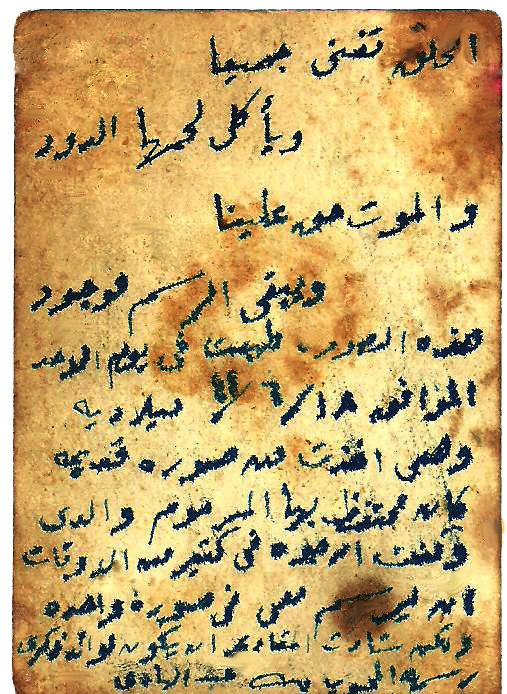 الخلق تفنى جميعا
ويأكل لحمها الدود
والموت حق علينا
ويبقى الرسم موجود
هذه الصوره طبعت فى يوم الاحد
الموافق ١٨ / ٦ / ميلاديه
وهى اخذت من صوره قديمه
كان محتفظ بها المرحوم والدى
وكنت ارغب فى كثير من الاوقات
ان يرسم معى فى صورة واحده
ولكن شاءت المقادير ان يكون لوالد فكرى
عبد الهادى